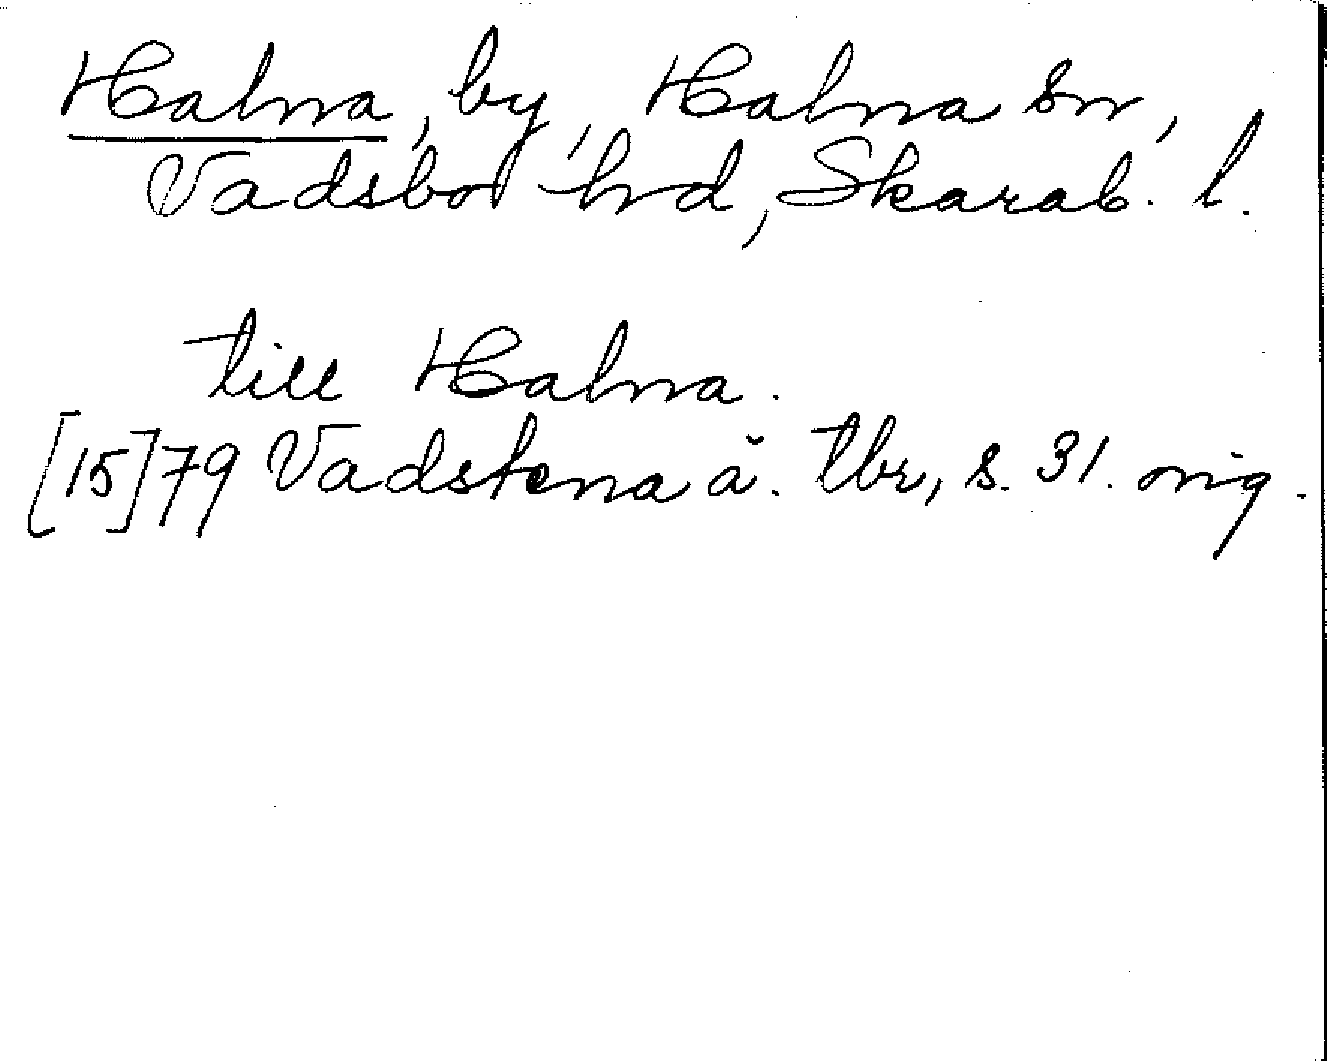 Halna, by, Halna sn,
Vadsbo hrd, Skarab. l.
till Halna.
[15]79 Vadstena ä. tbr, s. 31. orig.